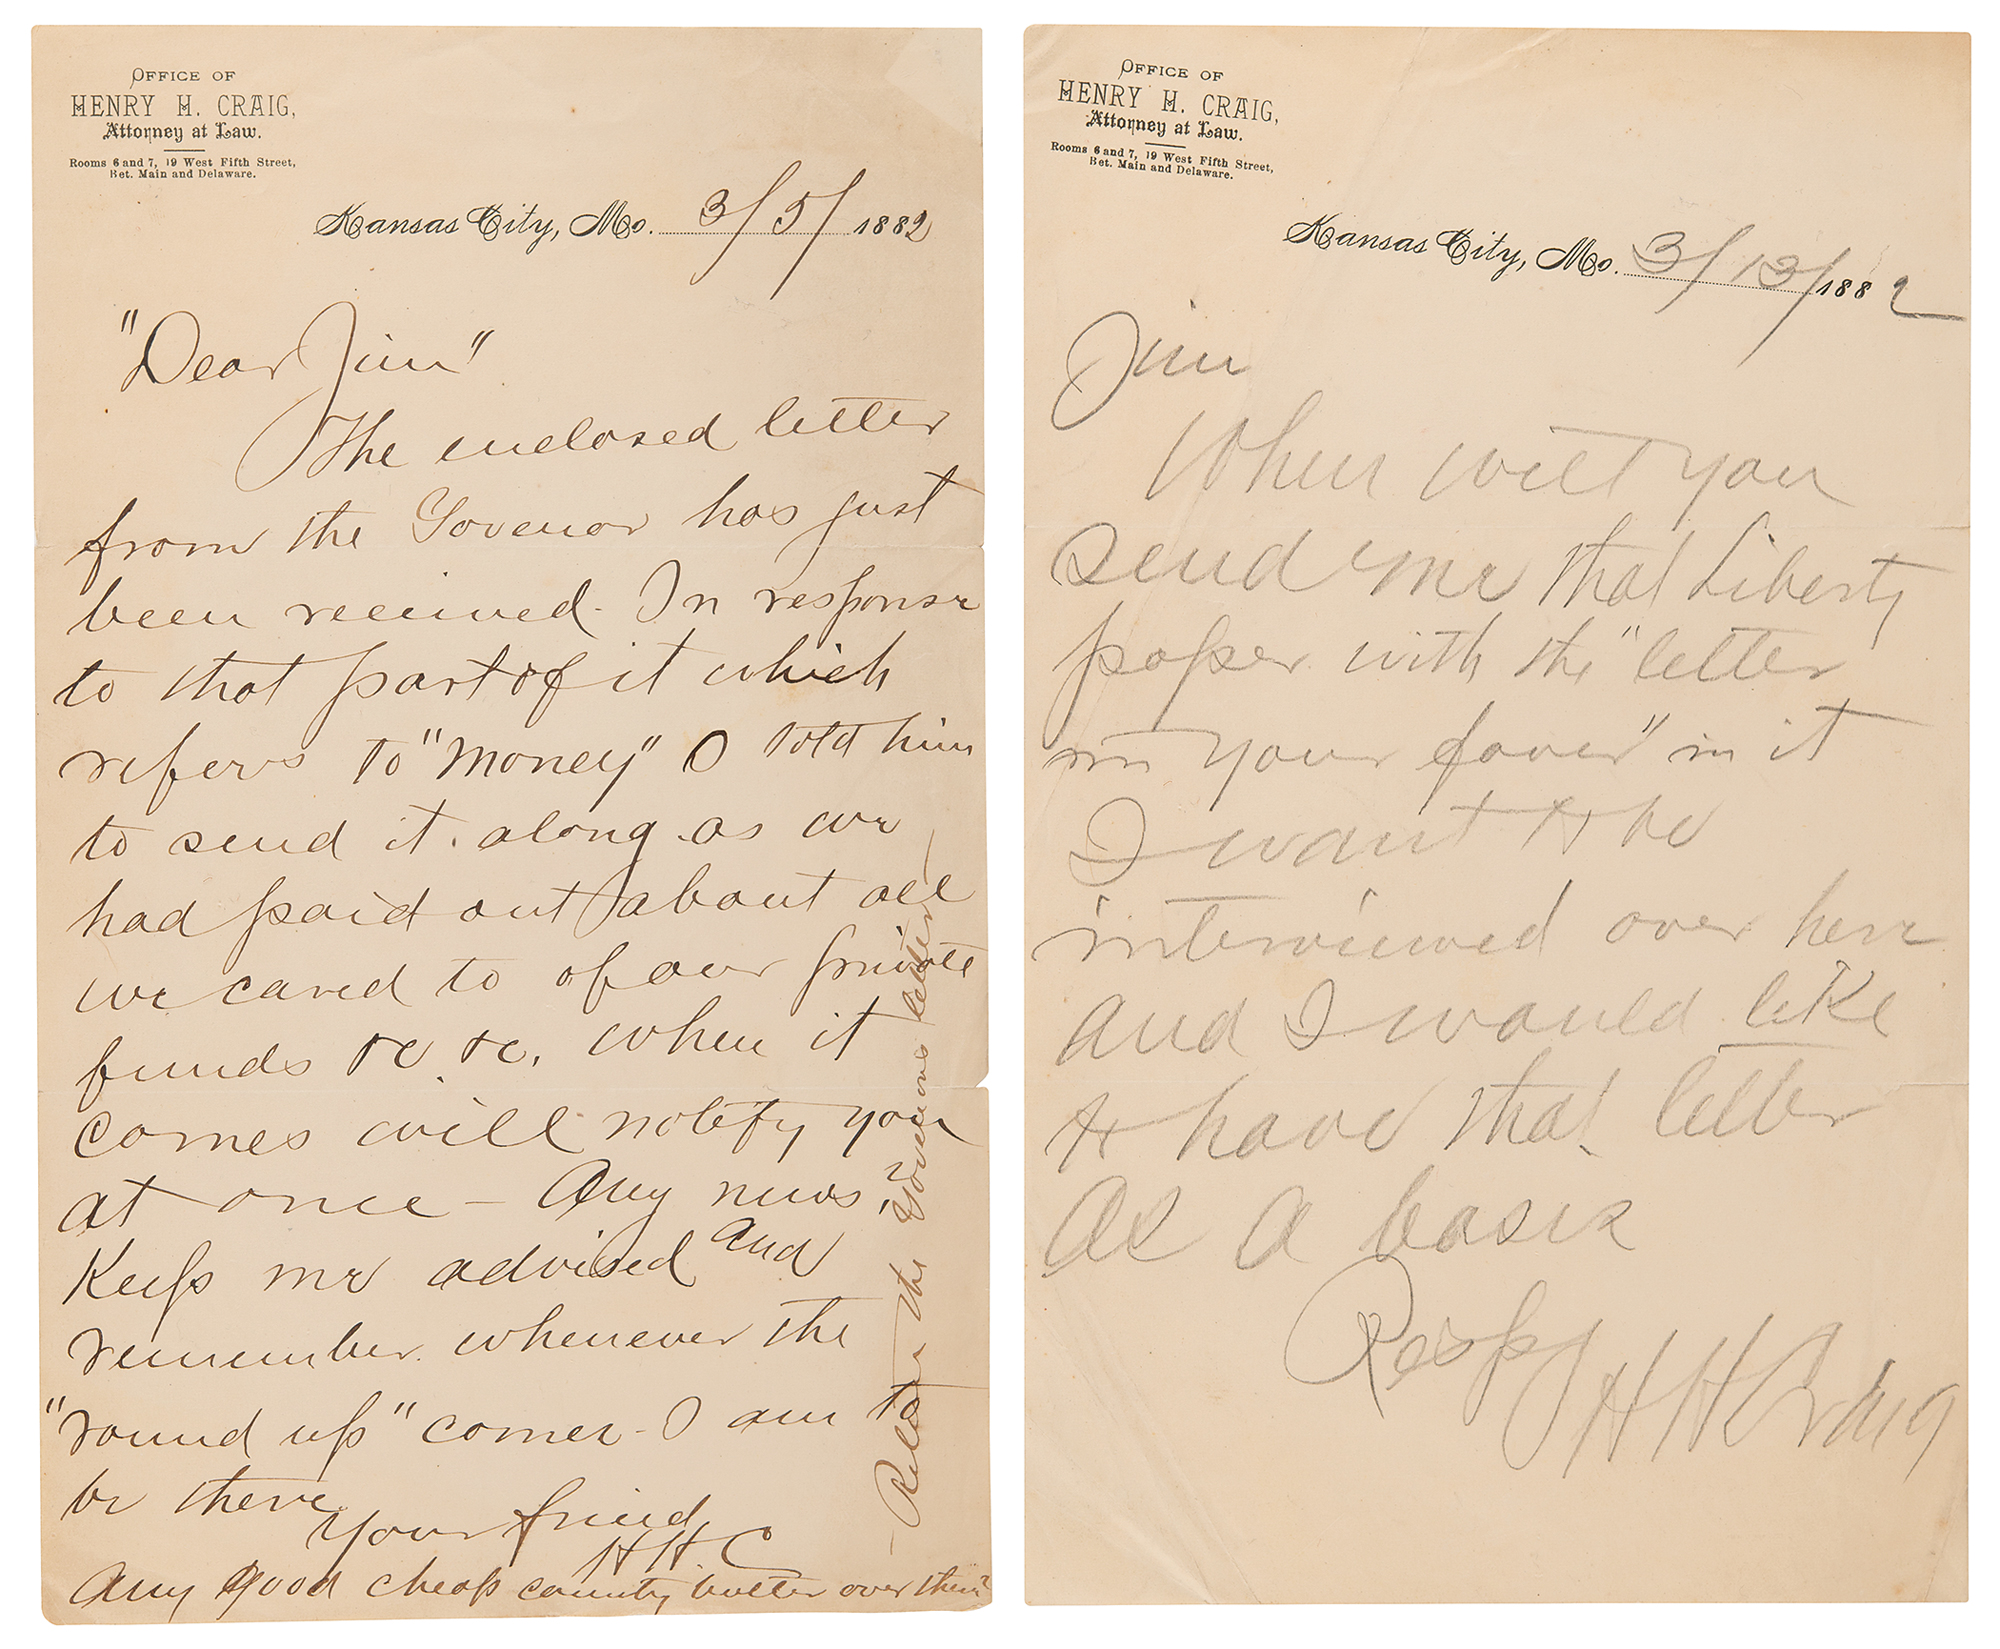 OFFICE OF
HENRY H. CRAIG,
Attorney at Law.
Rooms 6 and 7, 19 West Fifth Street,
Bet. Main and Delaware.
Kansas City, Mo. 3/5/ 1882
"Dear Jim"
The enclosed letter
from the Govenor has just
been received. In response
to that part of it which
refers to "Money" I told him
to send it along as we
had paid out about all
we cared to of our private
funds &c &c. When it
comes will notify you
at once – Any news?
Keep me advised and
remember whenever the
"round up" comes - I am to
be there
Your friend
HHC
Any good cheap country butter over there?
– Return the Govenors letter –
OFFICE OF
HENRY H. CRAIG,
Attorney at Law.
Rooms 6 and 7, 19 West Fifth Street,
Bet. Main and Delaware.
Kansas City, Mo. 3/13/ 1882
Jim
When will you
send me that Liberty
paper with the "letter
in your favor" in it
I want to be
interviewed over here
and I would like
to have that letter
as a basis
Resp
HHCraig